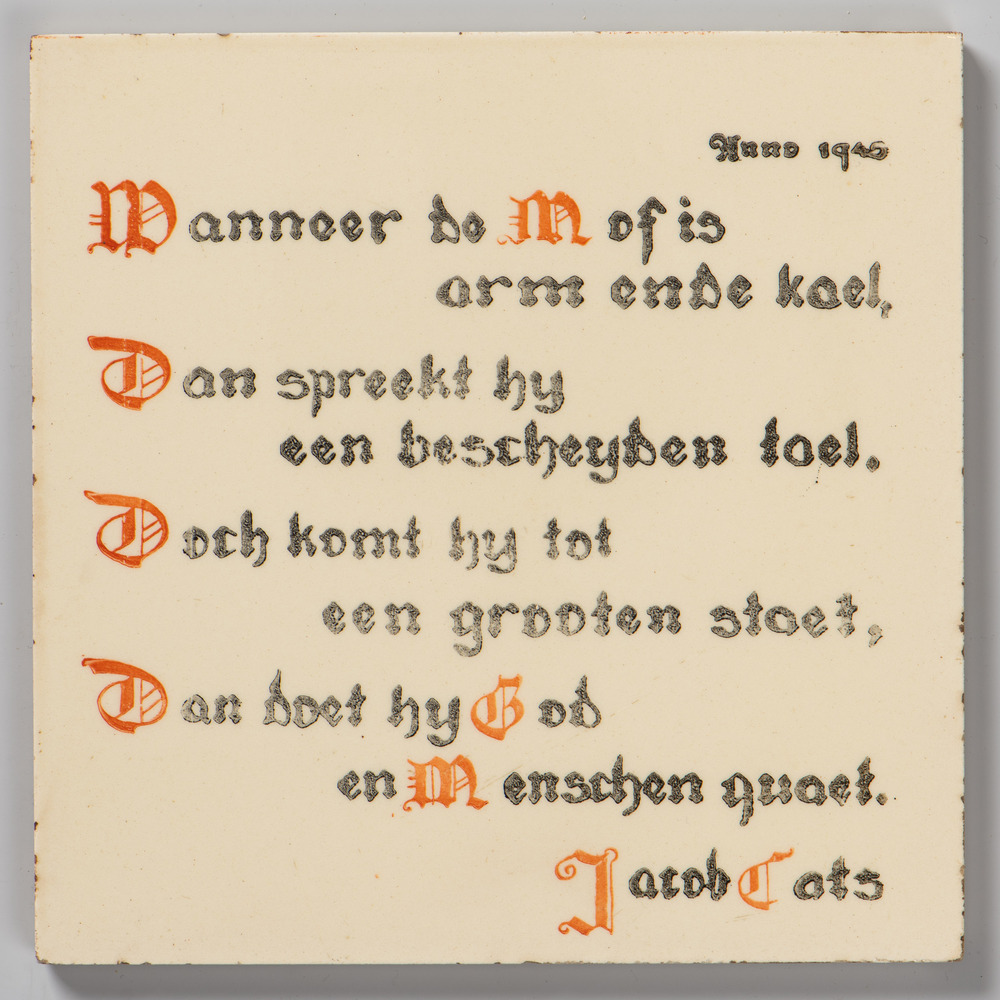 Anno 1945
Wanneer de Mof is
arm ende kael,
Dan spreekt hy
een bescheyden tael.
Doch komt hy tot
een grooten staet,
Dan doet hy God
en Menschen quaet.
Jacob Cats